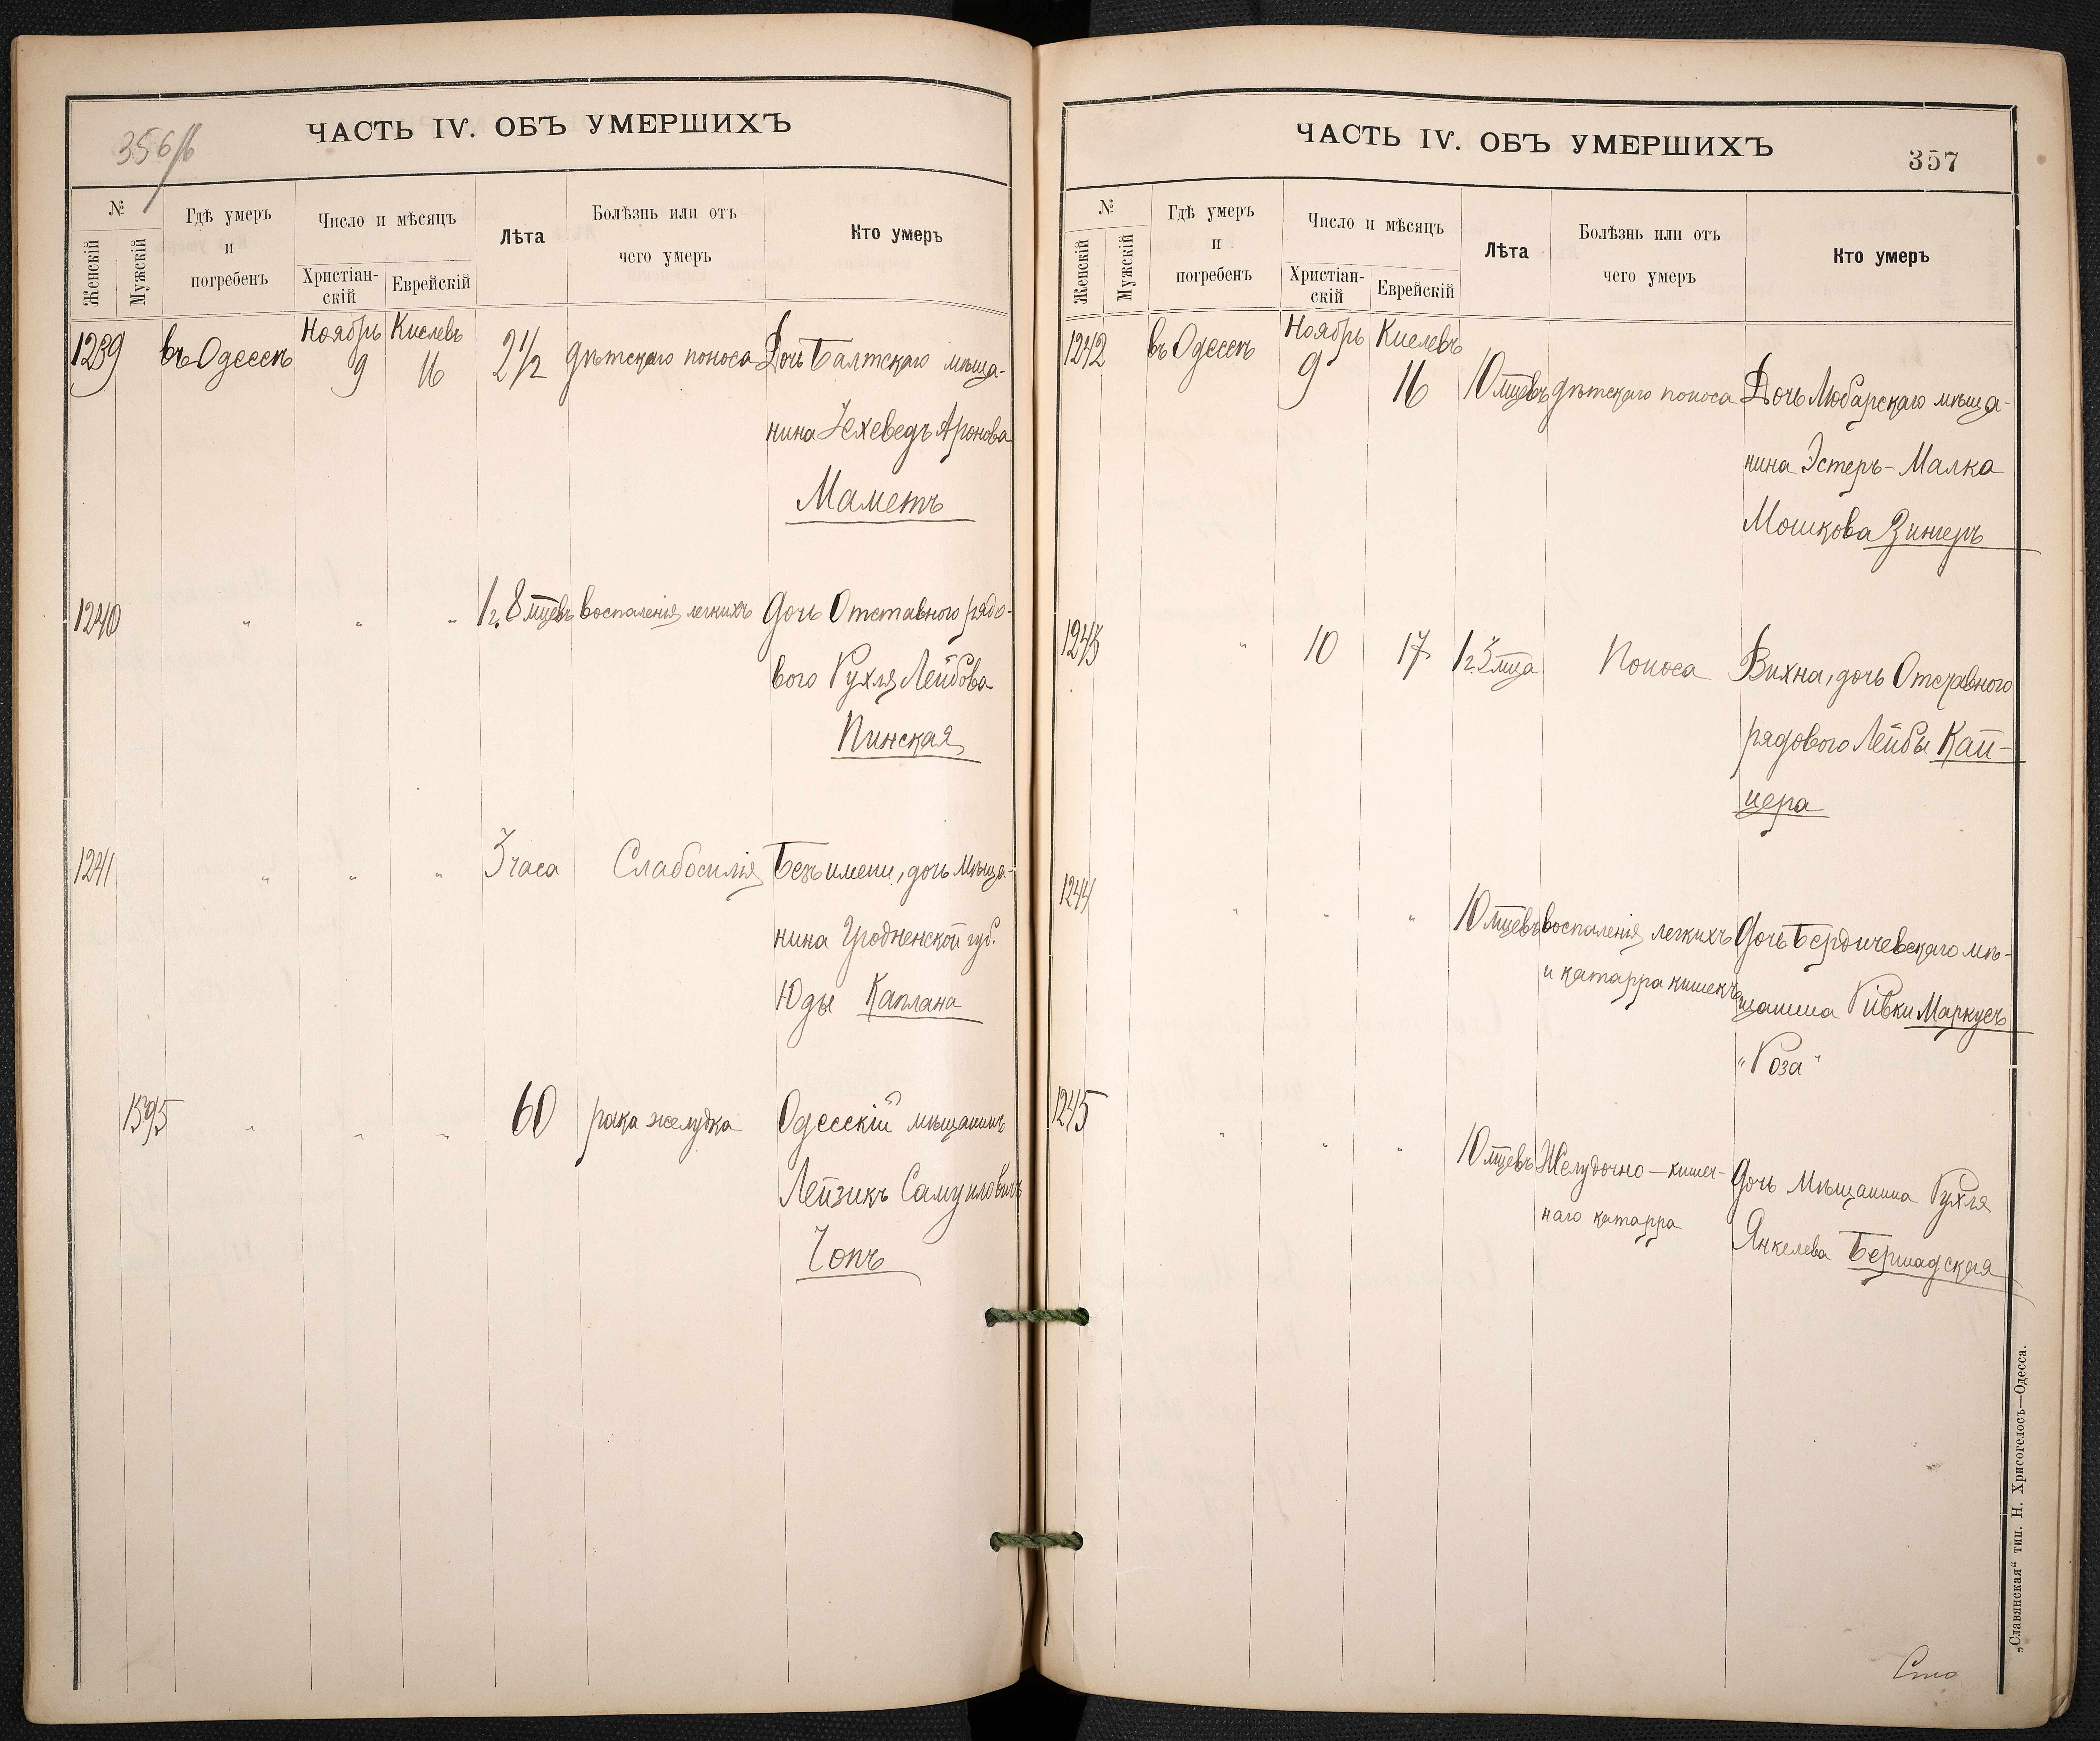 356/б
ЧАСТЬ IV. ОБЪ УМЕРШИХЪ
№
Женскій
Мужскій
Гдѣ умеръ
и
погребенъ
Число и мѣсяцъ
Христіан-
скій
Еврейскій
Лѣта
Болѣзнь или отъ
чего умеръ
Кто умеръ
Ноябрь Кислевъ
1239 въ Одессѣ 9 16 2 1/2 дѣтскаго поноса Дочь Балтскаго мѣща-
нина Іехеведъ Аронова
Маметъ
1240 " " " 1 г. 8 мцевъ воспаленія легкихъ Дочь Отставного рядо-
вого Рухля Лейбова
Пинская
1241 " " " 3 часа Слабосилія Безъ имени, дочь мѣща-
нина Гродненской губ.
Юды Каплана
1595 " " " 60 рака желудка Одесскій мѣщанинъ
Лейзикъ Самуиловичъ
Чопъ
ЧАСТЬ IV. ОБЪ УМЕРШИХЪ
357
№
Женскій
Мужскій
Гдѣ умеръ
и
погребенъ
Число и мѣсяцъ
Христіан-
скій
Еврейскій
Лѣта
Болѣзнь или отъ
чего умеръ
Кто умеръ
Ноябрь Кислевъ
1242 въ Одессѣ 9 16 10 мцевъ дѣтскаго поноса Дочь Любарскаго мѣща-
нина Эстеръ-Малка
Мошкова Зингеръ
1243 " 10 17 1 г. 3 мца Поноса Вихна, дочь Отставного
рядового Лейбы Кап-
цера
1244 " " " 10 мцевъ воспаленія легкихъ Дочь Бердичевскаго мѣ-
и катарра кишекъ щанина Ривки Маркусъ
"Роза"
1245 " " " 10 мцевъ Желудочно-кишеч- Дочь Мѣщанина Рухля
наго катарра Янкелева Бершадская
Сто
„Славянская“ тип. Н. Хрисогелосъ—Одесса.